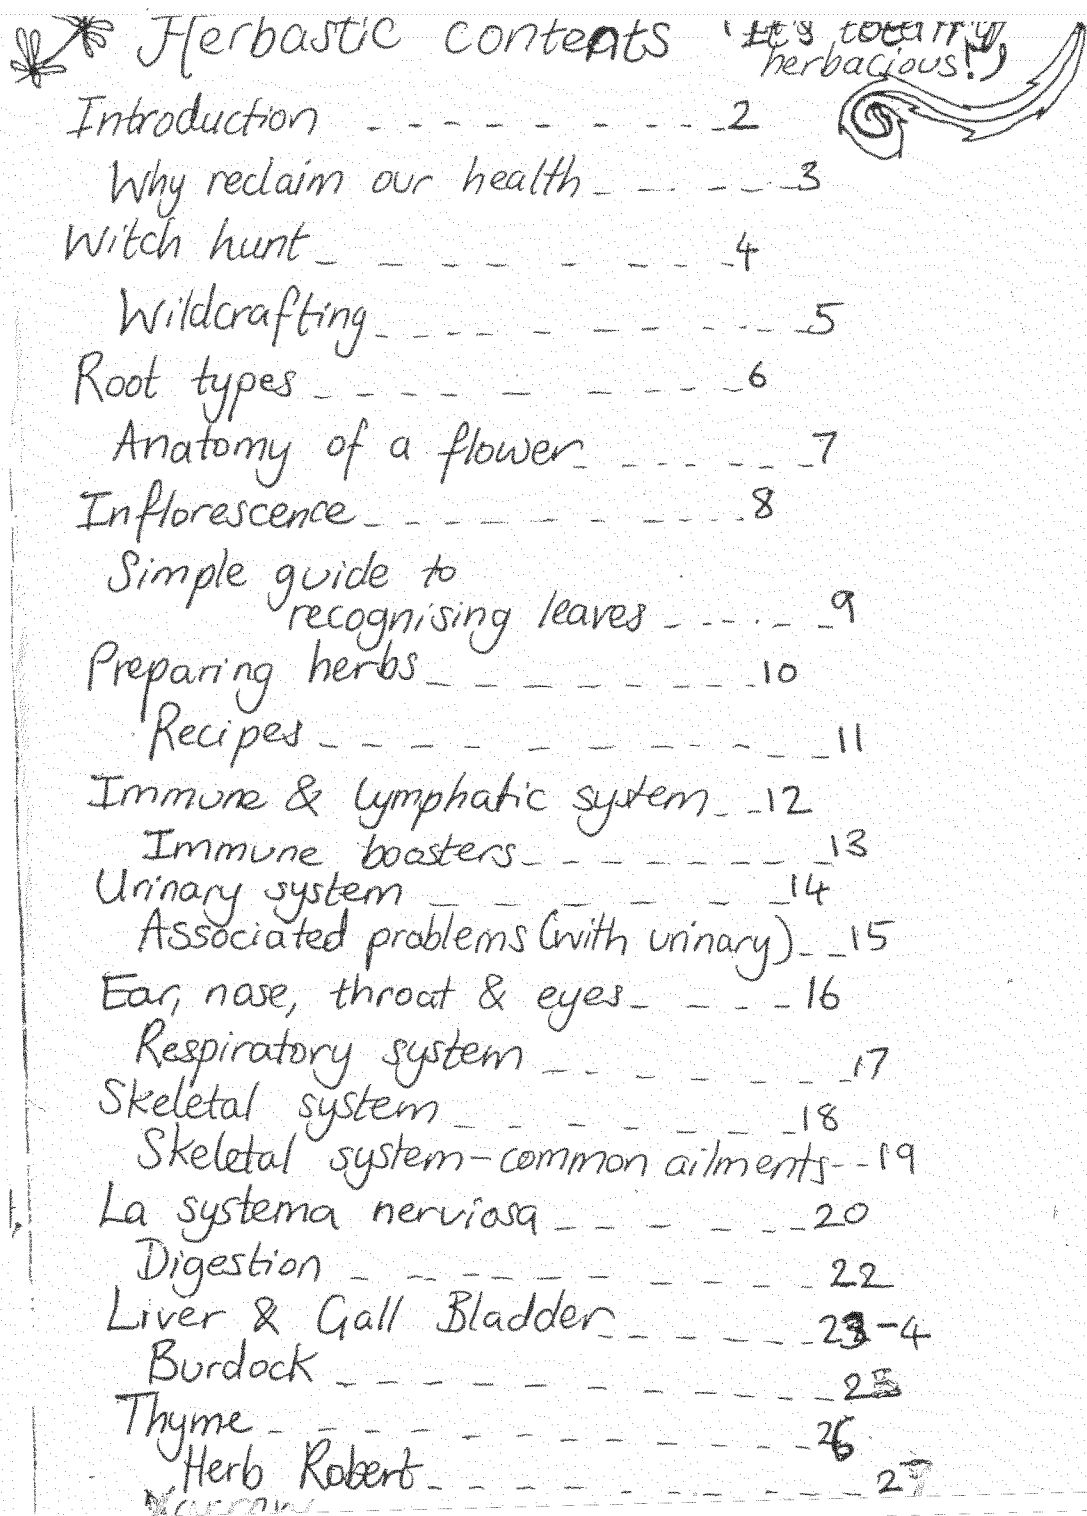 Herbastic contents (It's totally
herbacious!)
Introduction - - - - - - - - - 2
Why reclaim our health - - - - - 3
Witch hunt - - - - - - - - 4
Wildcrafting - - - - - - - - - - 5
Root types - - - - - - - - - 6
Anatomy of a flower - - - - - - 7
Inflorescence - - - - - - - - - 8
Simple guide to
recognising leaves - - - - - 9
Preparing herbs - - - - - - - - 10
Recipes - - - - - - - - - - 11
Immune & lymphatic system - - 12
Immune boosters - - - - - - - - 13
Urinary system - - - - - - - 14
Associated problems (with urinary) - - 15
Ear, nose, throat & eyes - - - - 16
Respiratory system - - - - - - - 17
Skeletal system - - - - - - - 18
Skeletal system - common ailments - - 19
La systema nerviosa - - - - - - 20
Digestion - - - - - - - - - - 22
Liver & Gall Bladder - - - - - - 23-4
Burdock - - - - - - - - - - - 25
Thyme - - - - - - - - - - - - 26
Herb Robert - - - - - - - - - 27
Yarrow